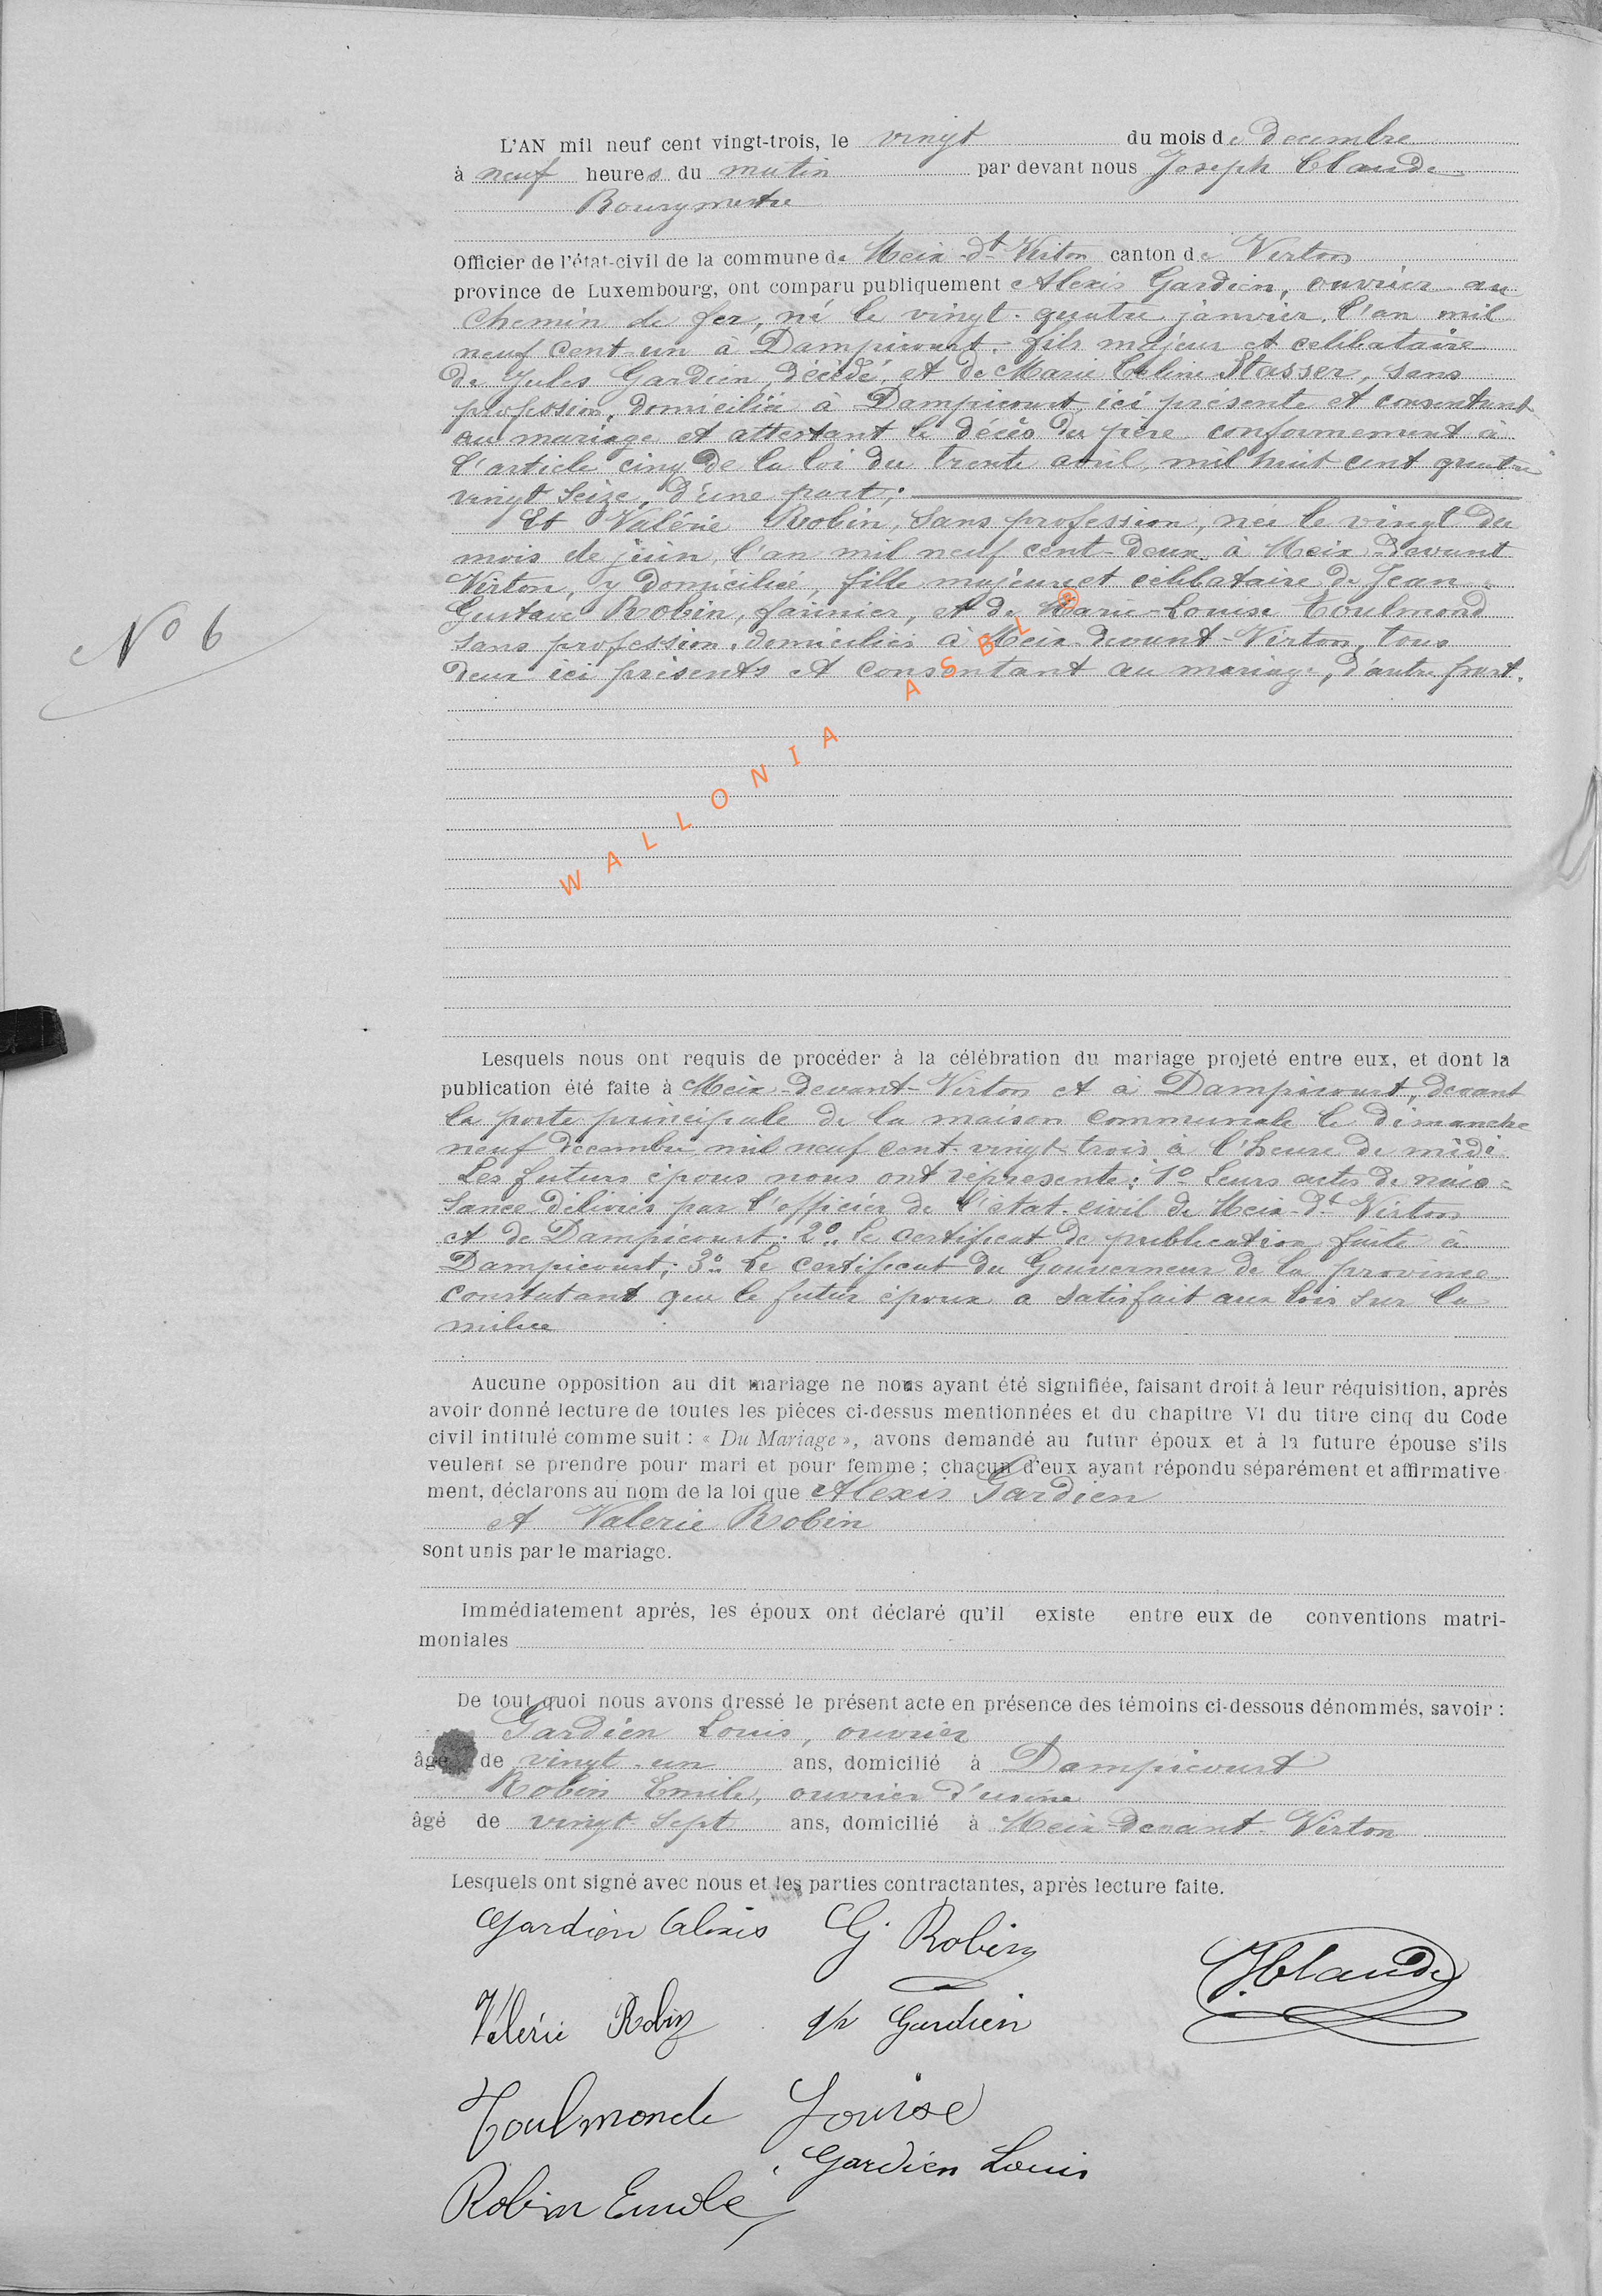 L'AN mil neuf cent vingt-trois, le vingt du mois de decembre
à neuf heures du matin par devant nous Joseph Claude
Bourgmestre
Officier de l'état-civil de la commune de Meix-dt-Virton canton de Virton
province de Luxembourg, ont comparu publiquement Alexis Gardien, ouvrier au
chemin de fer, né le vingt-quatre janvier, l'an mil
neuf cent-un à Dampicourt, fils majeur et célibataire
de Jules Gardien, décédé, et de Marie Céline Stasser, sans
profession, domiciliée à Dampicourt, ici présente et consentant
au mariage et attestant le décès du père conformement à
l'article cinq de la loi du trente avril, mil huit cent quatre
vingt seize, d'une part;
Et Valérie Robin, sans profession, née le vingt du
mois de juin, l'an mil neuf cent-deux à Meix-devant
Virton, y domiciliée, fille majeure et célibataire de Jean
Gustave Robin, fermier, et de Marie-Louise Toulmond
sans profession, domiciliés à Meix-devant-Virton, tous
deux ici présents et consentant au mariage, d'autre part.
Nº 6
WALLONIA ASBL ®
Lesquels nous ont requis de procéder à la célébration du mariage projeté entre eux, et dont la
publication été faite à Meix-devant-Virton et à Dampicourt, devant
la porte principale de la maison communale le dimanche
neuf decembre mil neuf cent-vingt-trois à l'heure de midi
Les futurs époux nous ont représenté: 1º Leurs actes de nais=
sance délivrés par l'officier de l'état-civil de Meix-dt Virton
et de Dampicourt: 2º Le certificat de publication faite à
Dampicourt; 3º Le certificat du Gouverneur de la province
constatant que le futur époux a satisfait aux lois sur la
milice
Aucune opposition au dit mariage ne nous ayant été signifiée, faisant droit à leur réquisition, après
avoir donné lecture de toutes les pièces ci-dessus mentionnées et du chapitre VI du titre cinq du Code
civil intitulé comme suit : « Du Mariage », avons demandé au futur époux et à la future épouse s'ils
veulent se prendre pour mari et pour femme ; chacun d'eux ayant répondu séparément et affirmative
ment, déclarons au nom de la loi que Alexis Gardien
et Valerie Robin
sont unis par le mariage.
Immédiatement après, les époux ont déclaré qu'il existe entre eux de conventions matri-
moniales
De tout quoi nous avons dressé le présent acte en présence des témoins ci-dessous dénommés, savoir :
Gardien Louis, ouvrier
âgé de vingt-un ans, domicilié à Dampicourt
Robin Emile, ouvrier d'usine
âgé de vingt-sept ans, domicilié à Meix-devant-Virton
Lesquels ont signé avec nous et les parties contractantes, après lecture faite.
Gardien Alexis G Robin
J Claude
Valérie Robin Gardien
Toulmonde Louise
Gardien Louis
Robin Emile